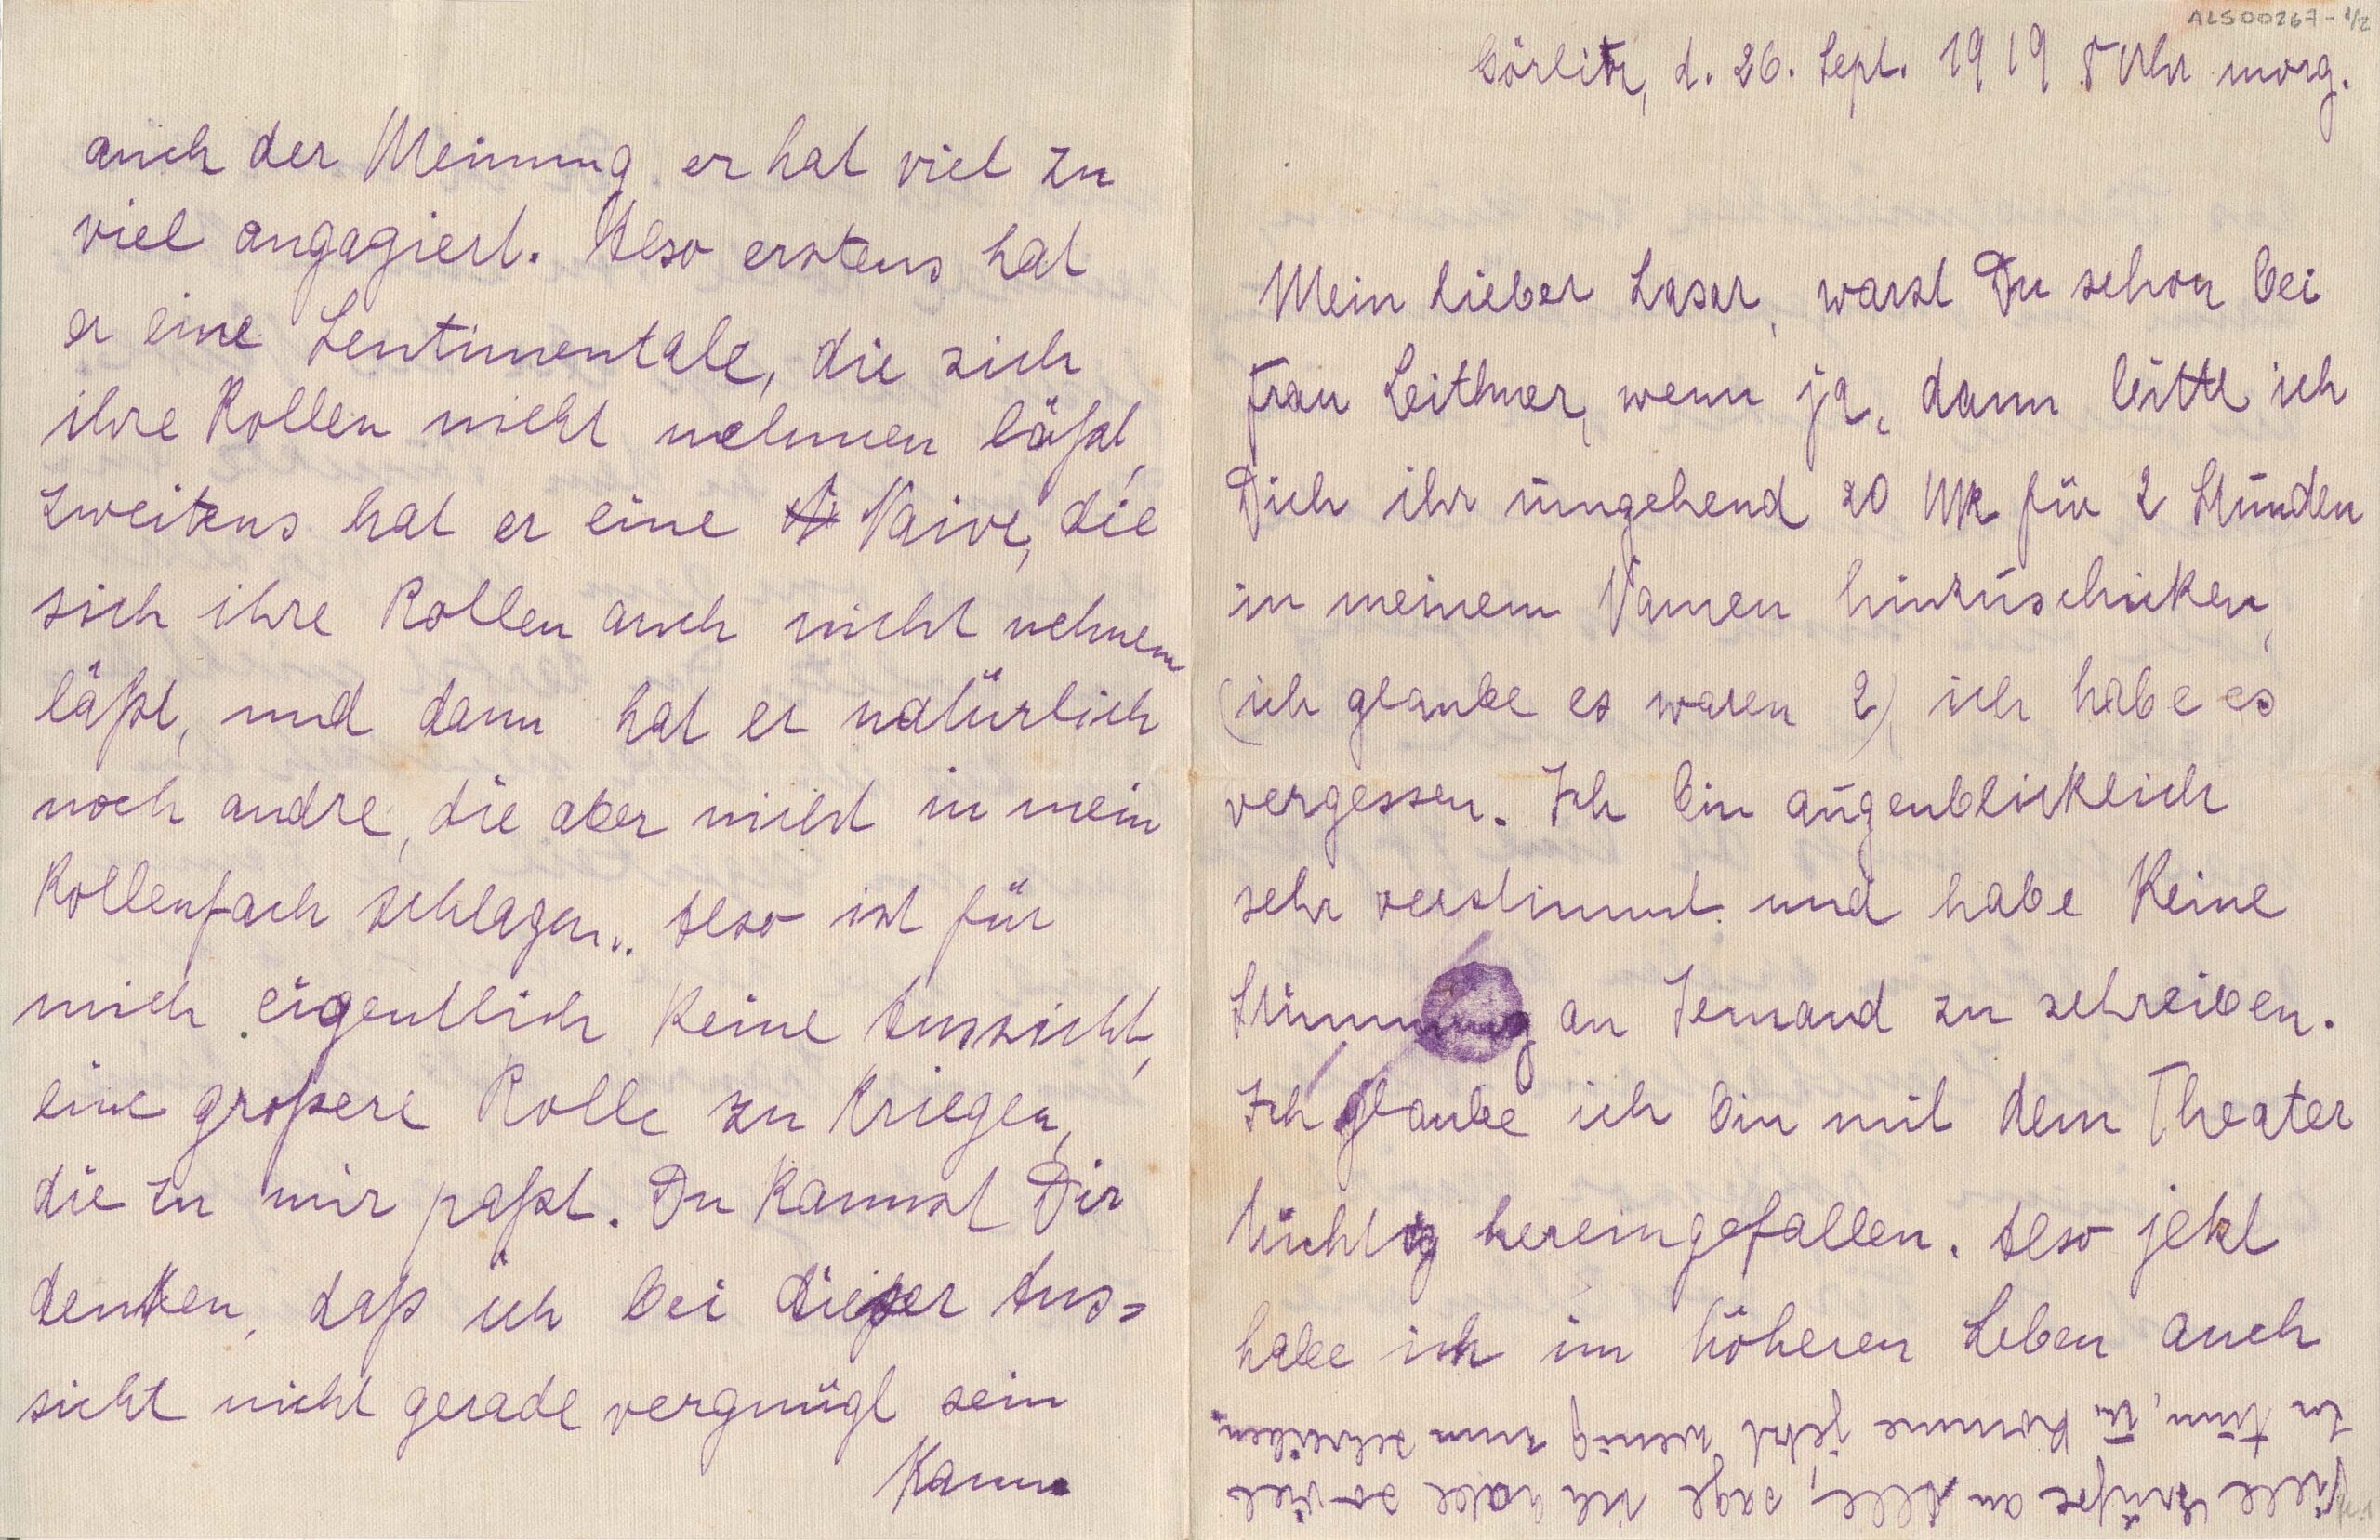 ALS00267-1/2
Görlitz, d. 26. Sept. 1919 8 Uhr morg.
Mein lieber Lasar, warst Du schon bei
Frau Leithner, wenn ja, dann bitte ich
Dich ihr umgehend 20 Mk für 2 Stunden
in meinem Namen hinzuschicken,
(ich glaube es waren 2) ich habe es
vergessen. Ich bin augenblicklich
sehr verstimmt und habe keine
Stimmung an Jemand zu schreiben.
Ich glaube ich bin mit dem Theater
tüchtig hereingefallen. Also jetzt
habe ich im höheren Leben auch
Viele Grüße an Alle, sage ich habe so viel
zu tun, u. komme jetzt wenig zum schreiben.
auch der Meinung er hat viel zu
viel angagiert. Also erstens hat
er eine Sentimentale, die sich
ihre Rollen nicht nehmen läßt,
zweitens hat er eine Naive, die
sich ihre Rollen auch nicht nehmen
läßt, und dann hat er natürlich
noch andre, die aber nicht in mein
Rollenfach schlagen.. Also ist für
mich eigentlich keine Aussicht,
eine großere Rolle zu kriegen,
die zu mir paßt. Du kannst Dir
denken, daß ich bei dieser Aus-
sicht nicht gerade vergnügt sein
kann